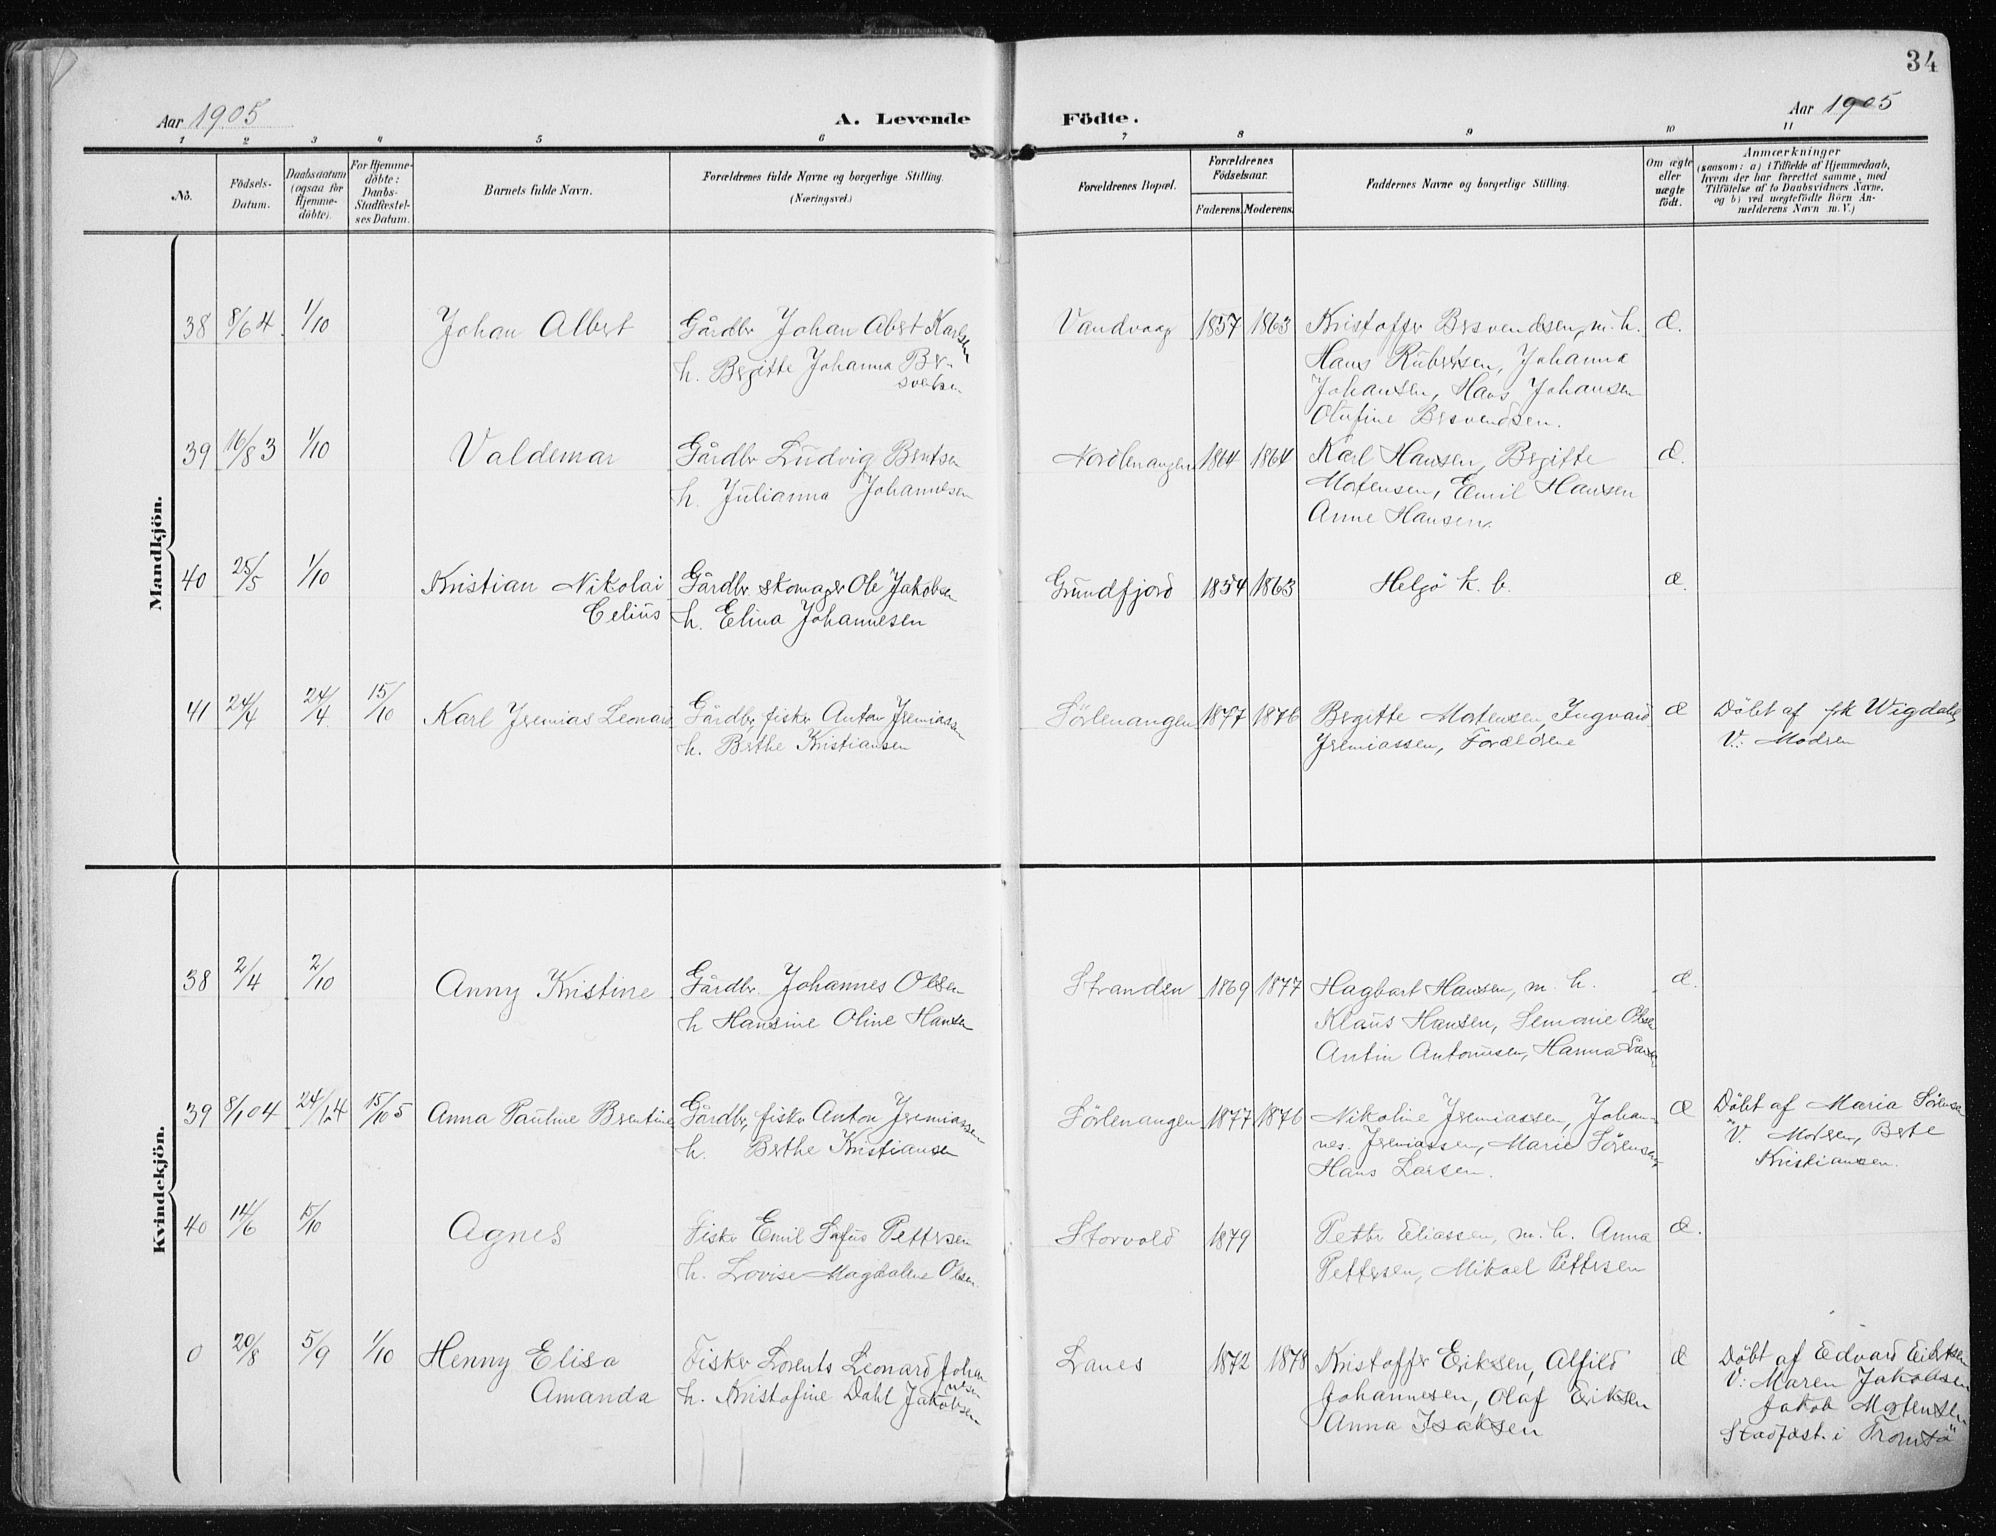 34
Aar 1905 A. Levende Födte. Aar 1905
1 2 3 4 5 6 7 8 9 10 11
No. Födsels-Datum. Daabsdatum (ogsaa for Hjemme-döbte). For Hjemme-döbte: Daabs-Stadfæstel-ses Datum. Barnets fulde Navn. Forældrenes fulde Navne og borgerlige Stilling. (Næringsvei.) Forældrenes Bopæl. Forældrenes Födselsaar. Faderens. Moderens. Faddernes Navne og borgerlige Stilling. Om ægte eller uægte födt. Anmærkninger (saasom: a) i Tilfælde af Hjemmedaab, hvem der har forrettet samme, med Tilföielse af to Daabsvidners Navne. og b) ved uægtefödte Börn An-melderens Navn m. V.)
Mandkjön.
38 8/6 4 1/10 Johan Albert Gårdbr Johan Abert Karlsen Vandvaag 1857 1863 Kristoffer Bersvendsen, m. h. æ.
h. Bergitte Johanna Ber- Hans Rubertsen, Johanna
Johansen, Hans Johansen
Olufine Bersvendsen.
39 16/8 3 1/10 Valdemar Gårdbr Ludvig Bentsen Nordlenangen 1864 1864 Karl Hansen, Bergitte æ.
h. Julianna Johannesen Mortensen, Emil Hansen
Anne Hansen.
40 25/5 1/10 Kristian Nikolai Gårdbr skomager Ole Jakobsen Grundfjord 1854 1863 Helgö k. b. æ.
Celius h. Elina Johannesen
41 24/4 24/4 15/10 Karl Jeremias Leonard Gårdbr, fisker Anton Jeremiassen Sörlenangen 1877 1876 Bergitte Mortensen, Ingvard æ Döbt af frk Wigdahl
h. Berthe Kristiansen Jeremiassen, Forældrene V: Modren
Kvindekjön.
38 2/4 2/10 Anny Kristine Gårdbr. Johannes Olsen Stranden 1869 1877 Hagbart Hansen, m. h. æ.
h Hansine Oline Hansen Klaus Hansen, Semonie Olsen
Antin Antonusen, Hanna
39 8/1 04 24/1 24 15/10 5 Anna Pauline Berntine Gårdbr, fisker Anton Jeremiassen Sörlenangen 1877 1876 Nikoline Jeremiassen, Johan- æ Döbt af Maria Sörensen
h. Berthe Kristiansen nes Jeremiassen, Marie Sörensen V. Modren, Berte
Hans Larsen. Kristiansen.
40 14/6 15/10 Agnes Fisker Emil Sofus Pettersen Storvold 1879 Petter Eliassen, m. h. Anna æ.
h. Lovise Magdalene Olsen. Pettersen, Mikael Pettersen
0 20/8 5/9 1/10 Henny Elisa Fisker Lorents Leonard Johannesen Lanes 1872 1878 Kristoffer Eriksen, Alfild æ Döbt af Edvard Eilertsen
Amanda h. Kristofine Dahl Jakobsen Johannesen, Olaf Eriksen V: Maren Jakobsen
Anna Isaksen Jakob Mortensen
Stadfæst. i Tromsö